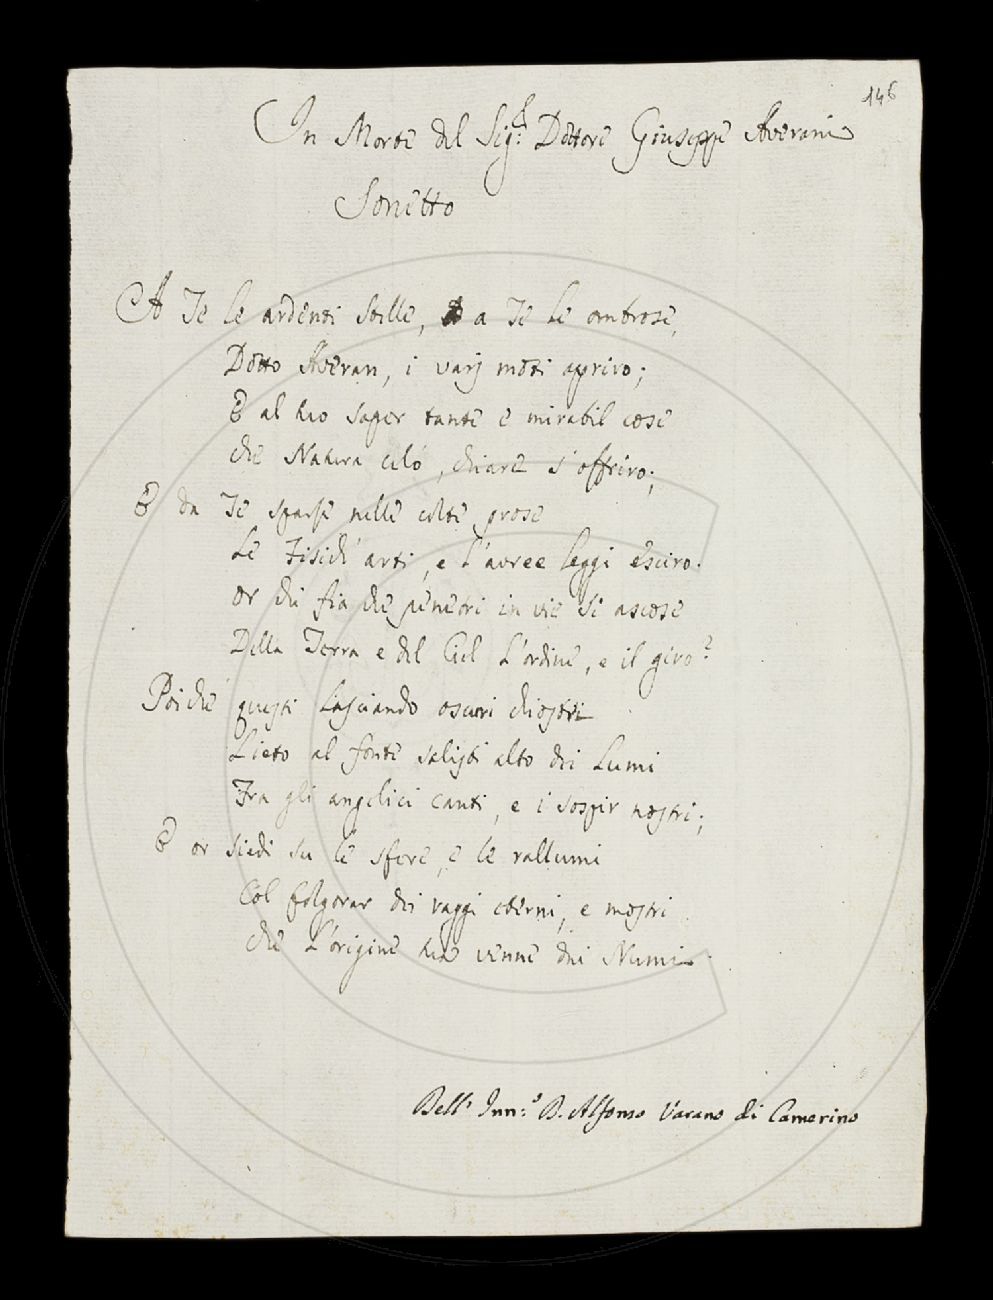 146
In Morte del Sig.r Dottore Giuseppe Averani
Sonetto
A Te le ardenti Stelle, a Te Le ombrose,
Dotto Averan, i varj moti apriro;
E al tuo saper tante e mirabil cose
che Natura celò, chiare s'offriro;
E da Te sparse nelle colte prose
Le Fisich' arti, e l'auree leggi esciro.
or chi fia che penetri in vie sì ascose
Della Terra e del Ciel L'ordine, e il giro?
Poichè questi Lasciando oscuri chiostri
Lieto al fonte salisti alto dei Lumi
Fra gli angelici canti, e i sospir nostri;
E or siedi su le sfere, e le rallumi
Col folgorar dei raggi eterni, e mostri
che L'origine tua venne dai Numi.
Dell' Inn:o D. Alfonso Varano di Camerino